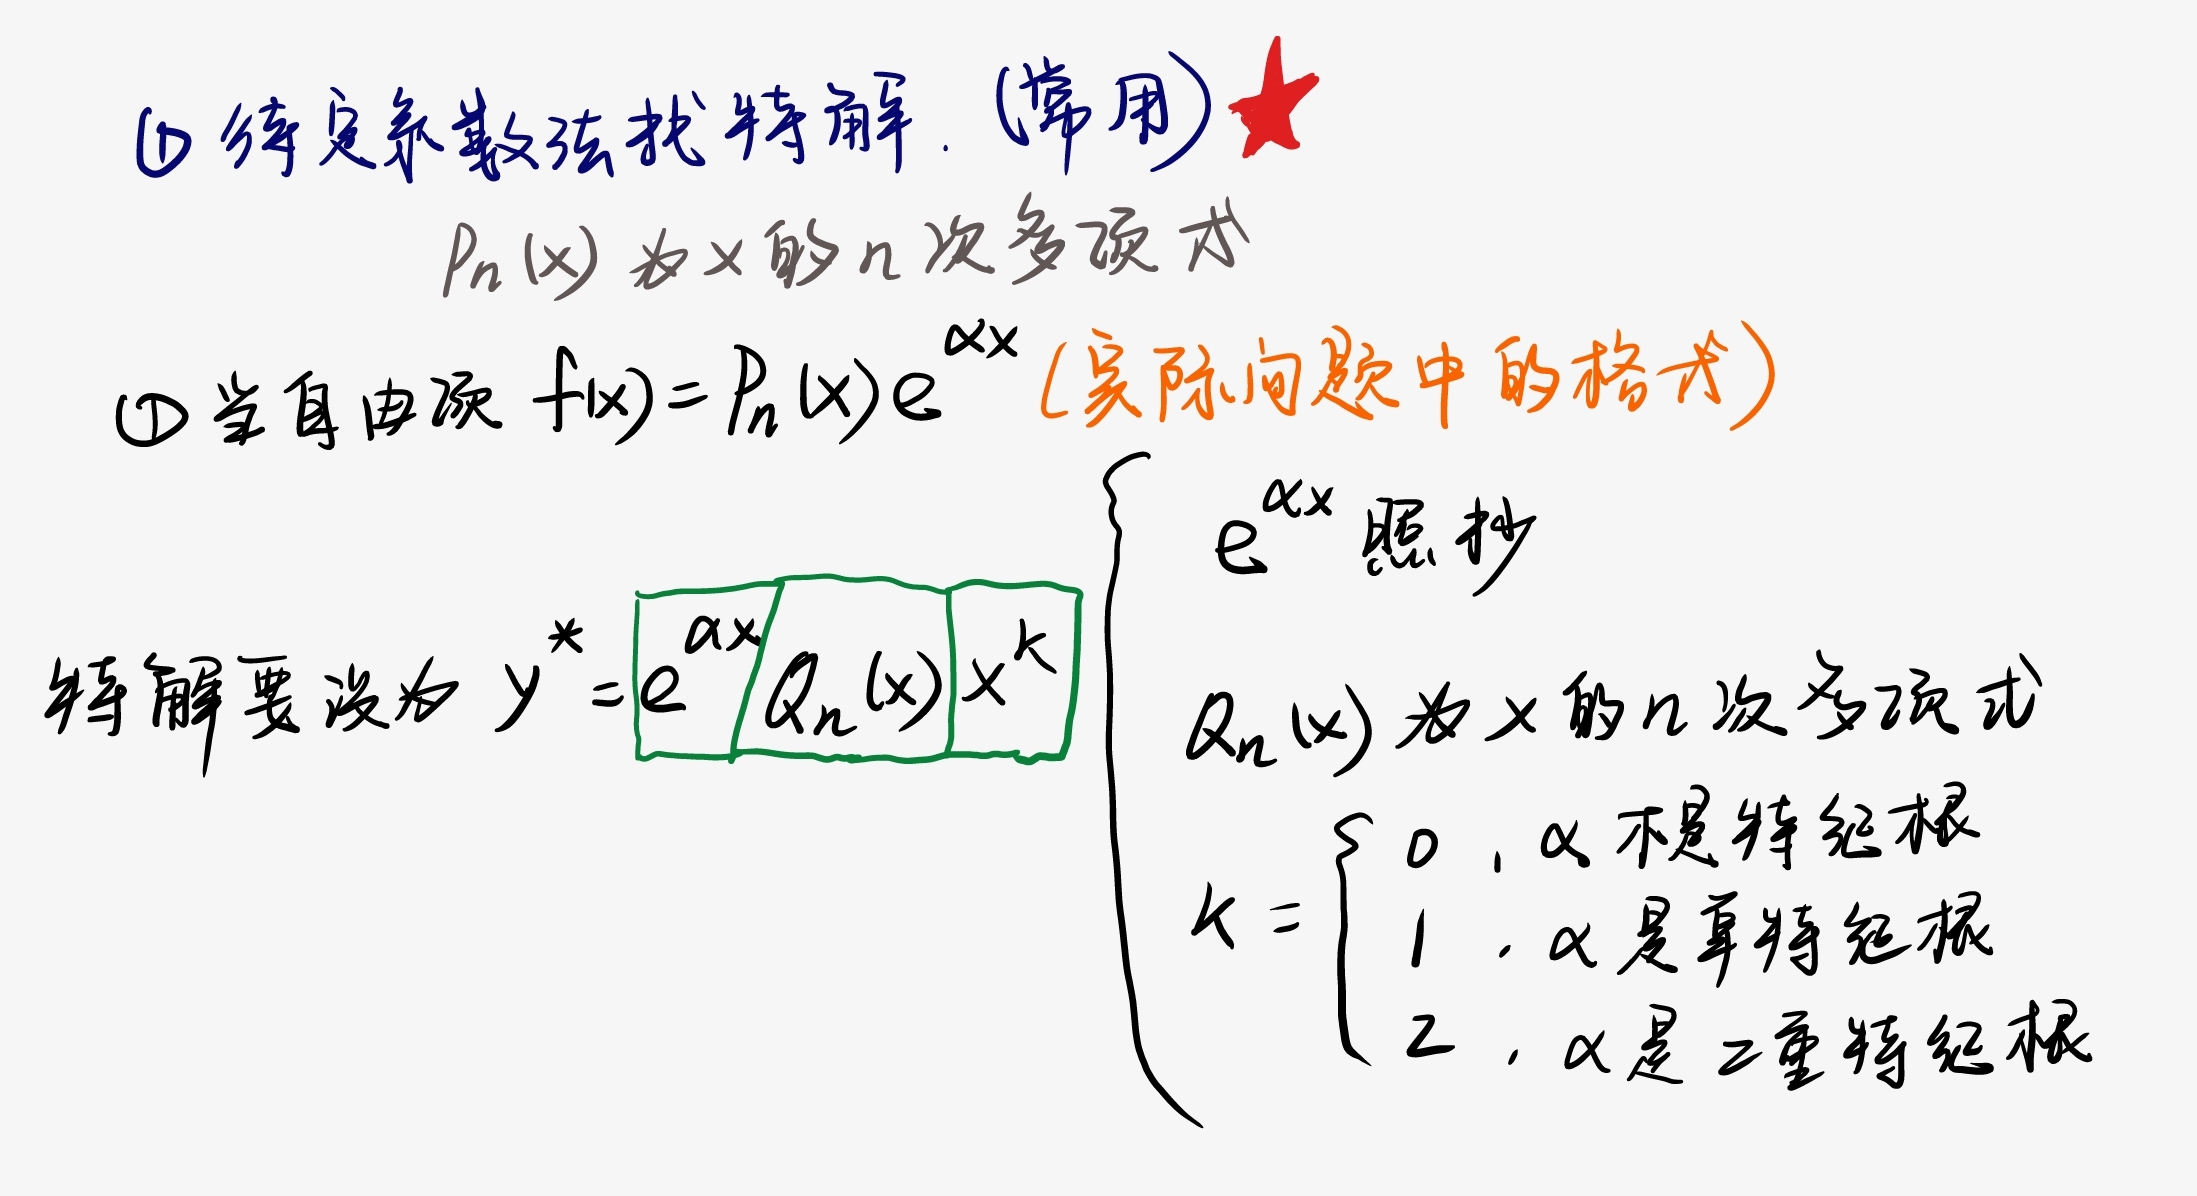 ① 待定系数法找特解.(常用)
Pn(x) 为 x 的 n 次多项式
① 当自由项 f(x)=Pn(x)e^αx (实际问题中的格式)
e^αx 照抄
特解要设为 y*=e^αx Qn(x) x^k
Qn(x) 为 x 的 n 次多项式
0，α不是特征根
k = 1，α是单特征根
2，α是二重特征根